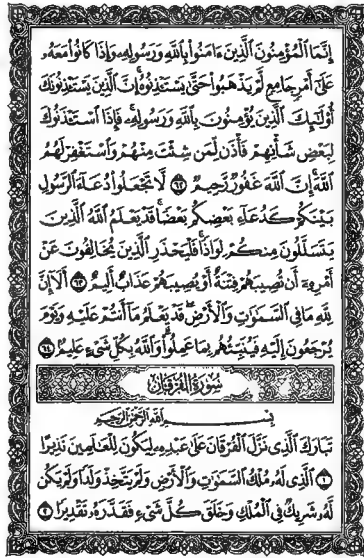 إِنَّمَا الْمُؤْمِنُونَ الَّذِينَ ءَامَنُوا بِاللَّهِ وَرَسُولِهِ وَإِذَا كَانُوا مَعَهُ
عَلَىٰ أَمْرٍ جَامِعٍ لَّمْ يَذْهَبُوا حَتَّىٰ يَسْتَـْٔذِنُوهُ إِنَّ الَّذِينَ يَسْتَـْٔذِنُونَكَ
أُوْلَٰٓئِكَ الَّذِينَ يُؤْمِنُونَ بِاللَّهِ وَرَسُولِهِ فَإِذَا اسْتَـْٔذَنُوكَ
لِبَعْضِ شَأْنِهِمْ فَأْذَن لِّمَن شِئْتَ مِنْهُمْ وَاسْتَغْفِرْ لَهُمُ
اللَّهَ إِنَّ اللَّهَ غَفُورٌ رَّحِيمٌ ٦٢ لَّا تَجْعَلُوا دُعَآءَ الرَّسُولِ
بَيْنَكُمْ كَدُعَآءِ بَعْضِكُم بَعْضًا قَدْ يَعْلَمُ اللَّهُ الَّذِينَ
يَتَسَلَّلُونَ مِنكُمْ لِوَاذًا فَلْيَحْذَرِ الَّذِينَ يُخَالِفُونَ عَنْ
أَمْرِهِ أَن تُصِيبَهُمْ فِتْنَةٌ أَوْ يُصِيبَهُمْ عَذَابٌ أَلِيمٌ ٦٣ أَلَآ إِنَّ
لِلَّهِ مَا فِي السَّمَٰوَٰتِ وَالْأَرْضِ قَدْ يَعْلَمُ مَآ أَنتُمْ عَلَيْهِ وَيَوْمَ
يُرْجَعُونَ إِلَيْهِ فَيُنَبِّئُهُم بِمَا عَمِلُوا وَاللَّهُ بِكُلِّ شَىْءٍ عَلِيمٌ ٦٤
سُورَةُ الْفُرْقَانِ
بِسْمِ اللَّهِ الرَّحْمَٰنِ الرَّحِيمِ
تَبَارَكَ الَّذِي نَزَّلَ الْفُرْقَانَ عَلَىٰ عَبْدِهِ لِيَكُونَ لِلْعَٰلَمِينَ نَذِيرًا
١ الَّذِي لَهُ مُلْكُ السَّمَٰوَٰتِ وَالْأَرْضِ وَلَمْ يَتَّخِذْ وَلَدًا وَلَمْ يَكُن
لَّهُ شَرِيكٌ فِي الْمُلْكِ وَخَلَقَ كُلَّ شَىْءٍ فَقَدَّرَهُ تَقْدِيرًا ٢